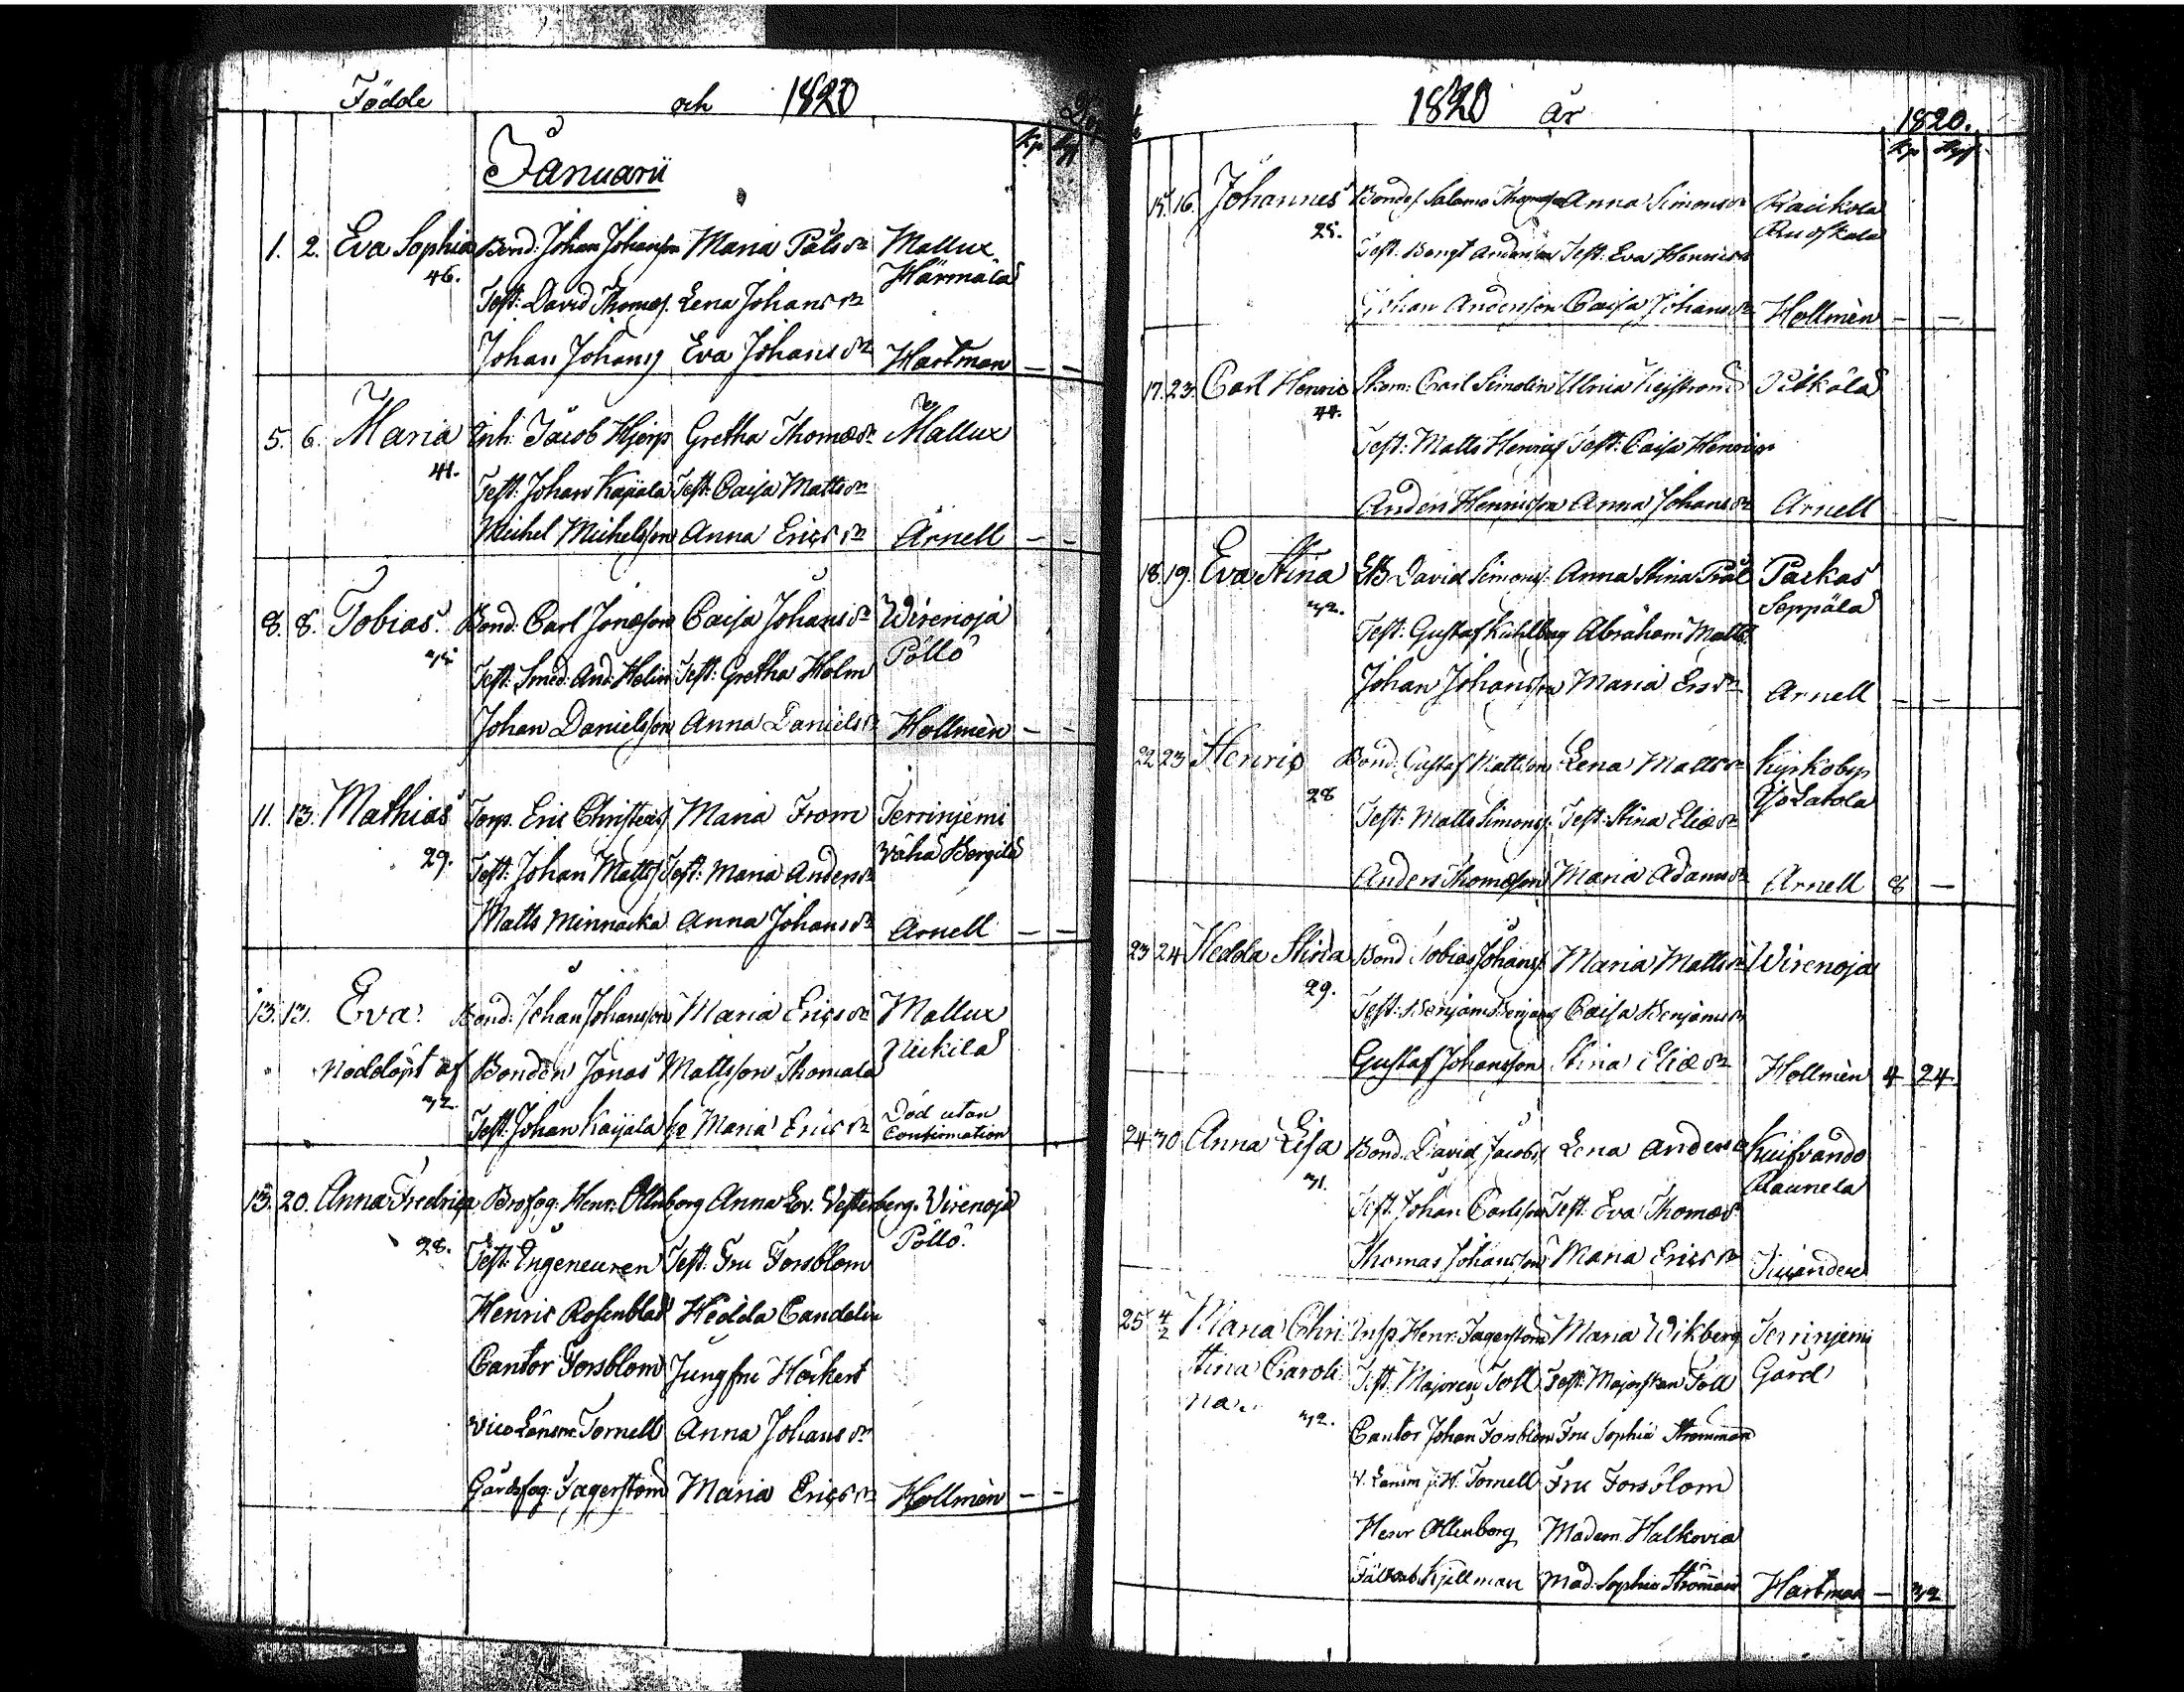 Födde och 1820
Januarii
1. 2. Eva Sophia Bond: Johan Johansson Maria Påls dr Mallux
46. Härmälä
Test: David Thomæs. Lena Johans dr
Johan Johanss Eva Johans dr Hartman — —
5. 6. Maria Inh: Jacob Hjerp Gretha Thomæ dr Mallux
41.
Test: Johan Kaijala Test: Caisa Matts dr
Michel Michelsson Anna Erics dr Arnell — —
8. 8. Tobias. Bond: Carl Jonæson Caisa Johans dr Wirenoja
Pöllö
Test: Smed: And: Helin Test: Gretha Holm
Johan Danielsson Anna Daniels dr Hollmèn — —
11. 13. Mathias Torp. Eric Christers Maria From Terrinjemi
29. Wähä Bergilä
Test: Johan Matts Test: Maria Anders dr
Matts Minnacka Anna Johans dr Arnell — —
13. 13. Eva Bond: Johan Johansson Maria Erics dr Mallux
Nöddöpt af Bonden Jonas Mattsson Thomala
32.
Test: Johan Kaijala Maria Erics dr Död utan
Confirmation
13. 20. Anna Fredrica Brofog: Henr: Ollenborg Anna Lov. Vesterberg. Wirenoja
28. Pöllö.
Test: Ingeneuren Test: Fru Forsblom
Henric Rosenblad Hedda Candelin
Cantor Forsblom Jungfru Höckert
Vice Länsm: Tornell Anna Johans dr
Gårdsfog: Fagerström Maria Erics dr Hollmèn — —
1820 År 1820.
15. 16. Johannes Bondes. Salomo Thomæson Anna Simons dr Raukola
25. Ruoskala
Test: Bengt Andersson Test: Eva Henrics dr
Johan Andersson Caisa Johans dr Hollmèn — —
17. 23. Carl Henric Skom: Carl Simelin Ulrica Pitkälä
44.
Test: Matts Henrics Test: Caisa Henrics dr
Anders Henricsson Anna Johans dr Arnell
18. 19. Eva Stina David Simons. Anna Stina Påls Parkas
32. Seppälä
Test: Gustaf Kuhlberg Abraham Matts.
Johan Johansson Maria Ers dr Arnell — —
22 23 Henric Bond: Gustaf Mattsson Lena Matts dr Kyrkobyn
28 Yölatola
Test: Matts Simons. Test: Stina Eliæ dr
Anders Thomæson Maria Adams dr Arnell 8 —
23 24 Hedda Stina Bond Tobias Johans. Maria Matts dr Wirenoja
29.
Test: Benjam Benjams Caisa Benjams dr
Gustaf Johansson Stina Eliæ dr Hollmèn 4 24.
24 30 Anna Lisa Bond. David Jacobs. Lena Anders dr Kuifvando
31. Raunela
Test: Johan Carlsson Test: Eva Thomæ dr
Thomas Johansson Maria Erics dr
25 4/2 Maria Chri- Insp. Henr: Fagerström Maria Wikberg Terrinjemi
stina Caroli- Test: Majoren Toll Test: Majorskan Toll Gård
na. 32.
Cantor Johan Forsblom Fru Sophia Strömman
V. Länsm J. H. Tornell Fru Forsblom
Henr Ollenborg Madem. Halkovia
Kjellman Mad: Sophia Strömman Hartman — 32